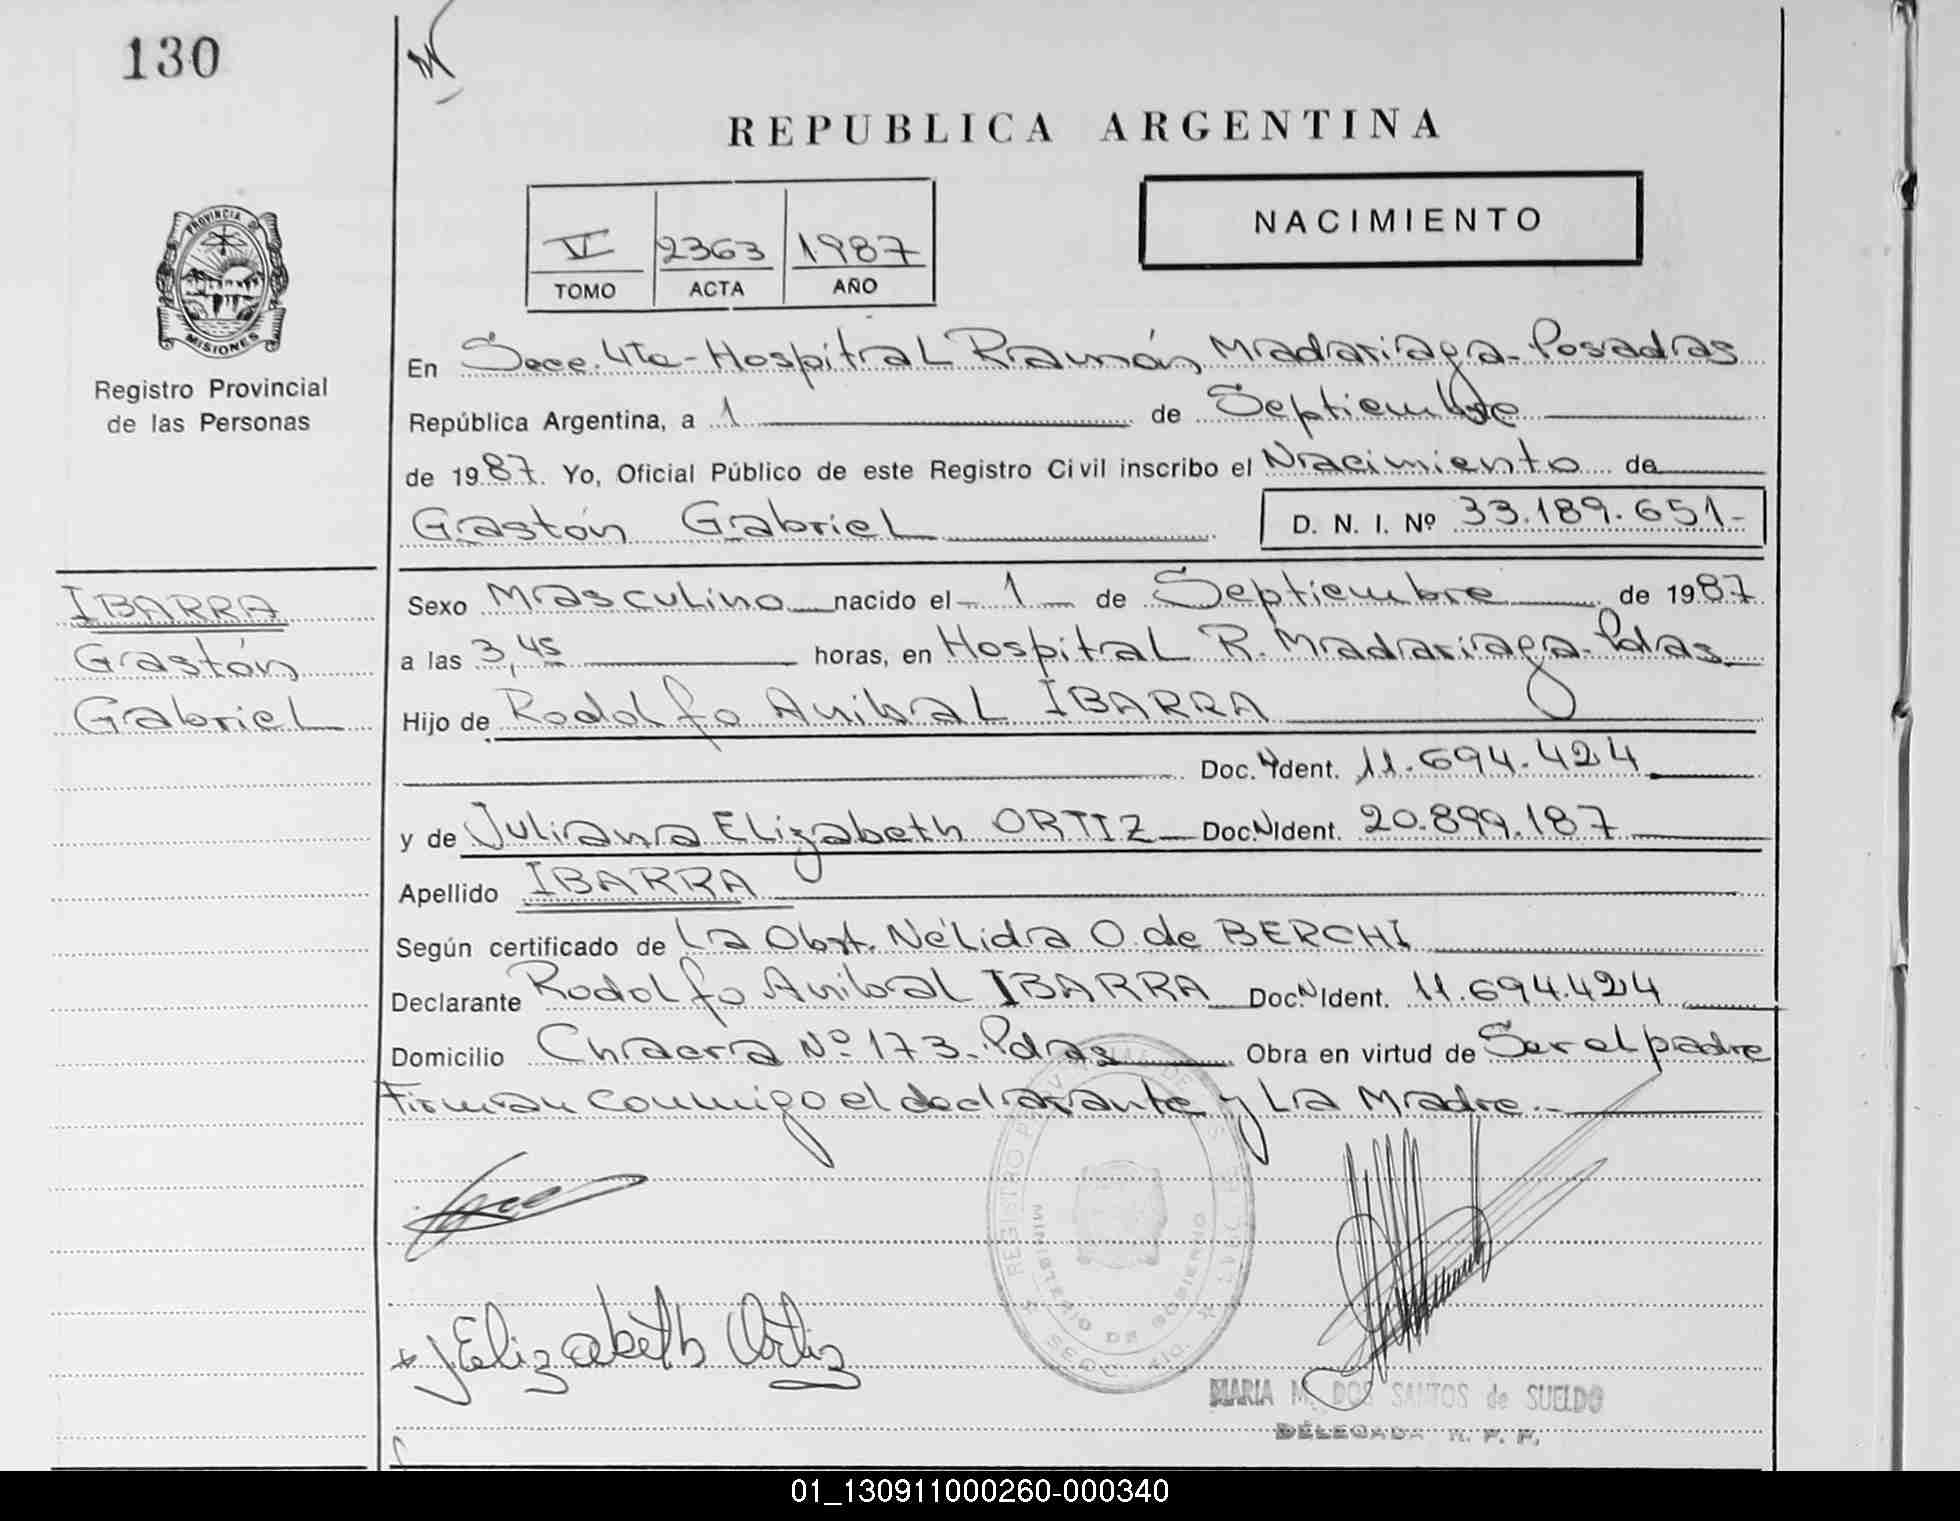 130
REPUBLICA ARGENTINA
NACIMIENTO
VI 2363 1987
TOMO ACTA AÑO
PROVINCIA DE
MISIONES
Registro Provincial
de las Personas
En Secc. 4ta-Hospital Ramón Madariaga-Posadas
República Argentina, a 1 de Septiembre
de 1987. Yo, Oficial Público de este Registro Civil inscribo el Nacimiento de
Gastón Gabriel
D. N. I. Nº 33.189.651-
IBARRA
Gastón
Gabriel
Sexo Masculino nacido el 1 de Septiembre de 1987
a las 3,45 horas, en Hospital R. Madariaga-Pdas
Hijo de Rodolfo Anibal IBARRA
Doc. Ident. 11.694.424
y de Juliana Elizabeth ORTIZ Doc.N Ident. 20.899.187
Apellido IBARRA
Según certificado de La Obst. Nélida O. de BERCHI
Declarante Rodolfo Anibal IBARRA Doc.N Ident. 11.694.424
Domicilio Chacra Nº 173-Pdas Obra en virtud de Ser el padre
Firman conmigo el declarante y La Madre.-
REGISTRO PROVINCIAL DE LAS
MINISTERIO DE GOBIERNO
J Elizabeth Ortiz
MARIA M. DOS SANTOS de SUELDO
DELEGADA R. P. P.
01_130911000260-000340